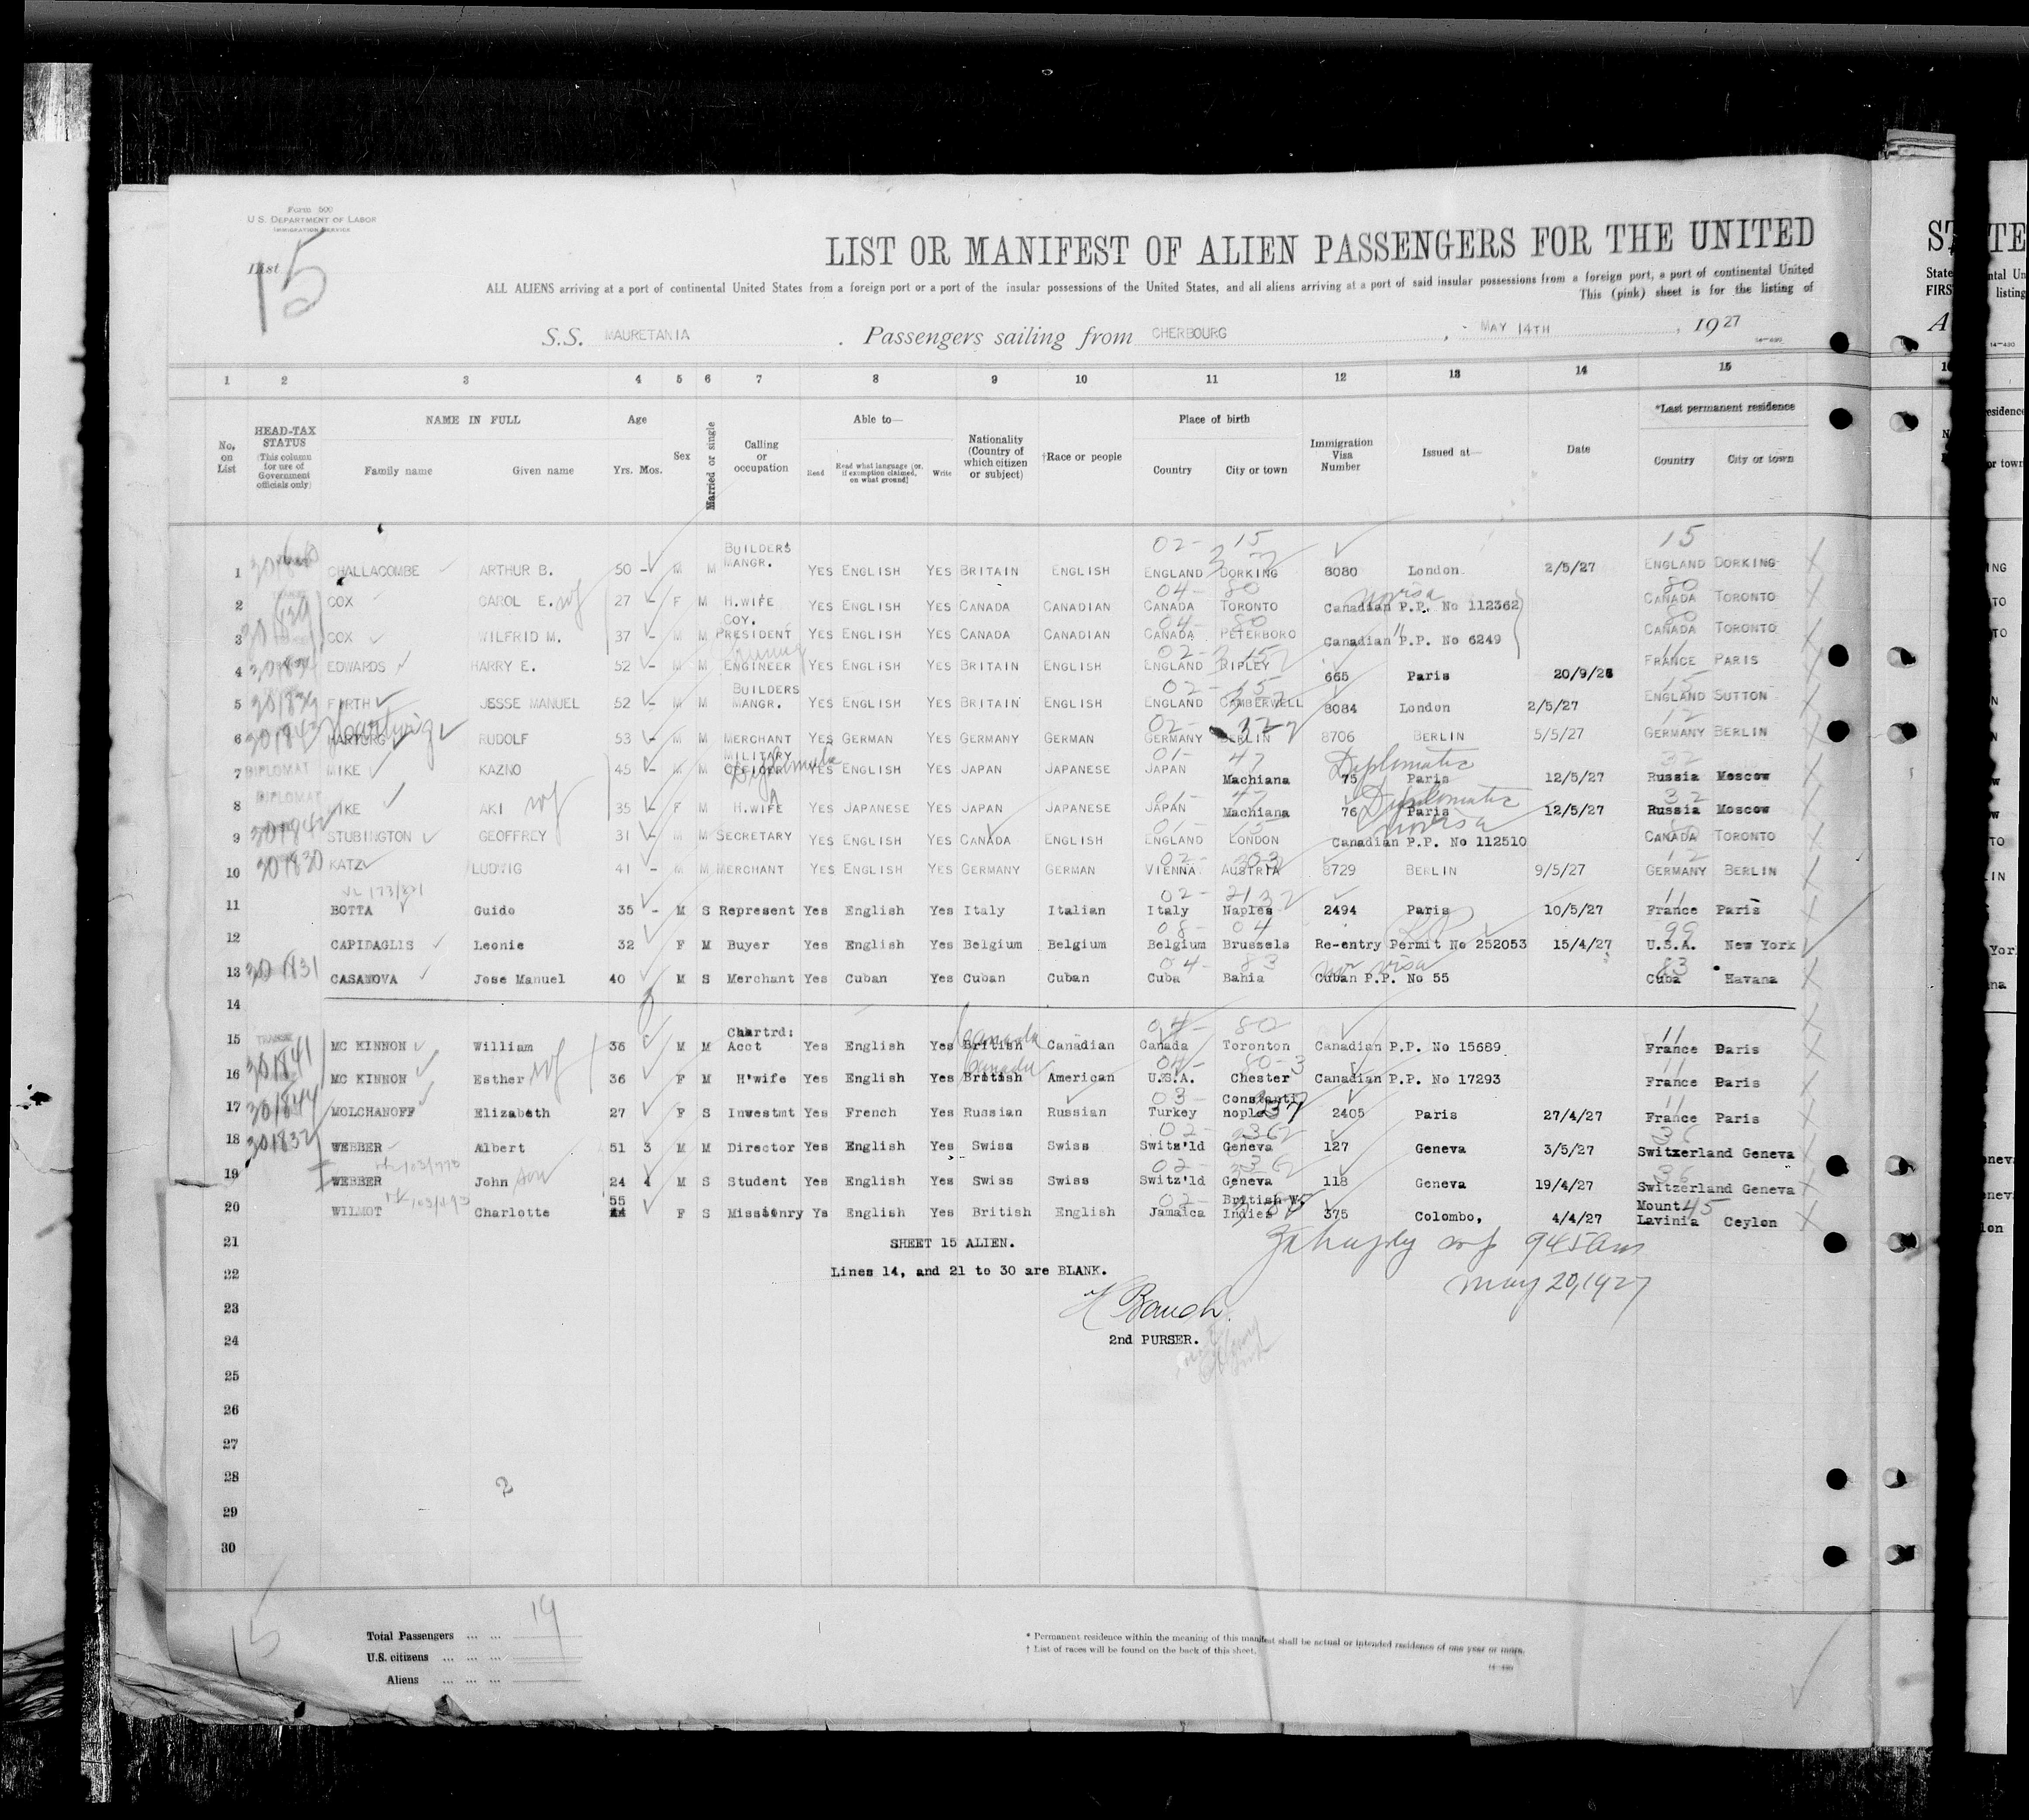 Form 500
U. S. DEPARTMENT OF LABOR
IMMIGRATION SERVICE
List 15
LIST OR MANIFEST OF ALIEN PASSENGERS FOR THE UNITED
ALL ALIENS arriving at a port of continental United States from a foreign port or a port of the insular possessions of the United States, and all aliens arriving at a port of said insular possessions from a foreign port, a port of continental United
This (pink) sheet is for the listing of
S.S. MAURETANIA . Passengers sailing from CHERBOURG , MAY 14TH , 1927
14—430
1 2 3 4 5 6 7 8 9 10 11 12 13 14 15
No. on List
HEAD-TAX STATUS (This column for use of Government officials only)
NAME IN FULL
Family name Given name
Age
Yrs. Mos.
Sex
Married or single
Calling or occupation
Able to—
Read Read what language (or, if exemption claimed, on what ground) Write
Nationality (Country of which citizen or subject)
†Race or people
Place of birth
Country City or town
Immigration Visa Number
Issued at—
Date
*Last permanent residence
Country City or town
1 CHALLACOMBE ARTHUR B. 50 - M M BUILDERS MANGR. YES ENGLISH YES BRITAIN ENGLISH ENGLAND DORKING 8080 London 2/5/27 ENGLAND DORKING
2 COX CAROL E. wf 27 - F M H.WIFE YES ENGLISH YES CANADA CANADIAN CANADA TORONTO Canadian P.P. No 112362 no visa CANADA TORONTO
3 COX WILFRID M. 37 - M M COY. PRESIDENT YES ENGLISH YES CANADA CANADIAN CANADA PETERBORO Canadian P.P. No 6249 CANADA TORONTO
4 EDWARDS HARRY E. 52 - M M ENGINEER YES ENGLISH YES BRITAIN ENGLISH ENGLAND RIPLEY 665 Paris 20/9/26 FRANCE PARIS
5 FIRTH JESSE MANUEL 52 - M M BUILDERS MANGR. YES ENGLISH YES BRITAIN ENGLISH ENGLAND CAMBERWELL 8084 London 2/5/27 ENGLAND SUTTON
6 HARTURG Hartwig RUDOLF 53 - M M MERCHANT YES GERMAN YES GERMANY GERMAN GERMANY BERLIN 8706 BERLIN 5/5/27 GERMANY BERLIN
7 DIPLOMAT MIKE KAZNO 45 - M M MILITARY OFFICER YES ENGLISH YES JAPAN JAPANESE JAPAN Machiana 75 Paris Diplomatic 12/5/27 Russia Moscow
8 DIPLOMAT MIKE AKI wf 35 - F M H.WIFE YES JAPANESE YES JAPAN JAPANESE JAPAN Machiana 76 Paris Diplomatic 12/5/27 Russia Moscow
9 STUBINGTON GEOFFREY 31 - M M SECRETARY YES ENGLISH YES CANADA ENGLISH ENGLAND LONDON Canadian P.P. No 112510 no visa CANADA TORONTO
10 301830 KATZ LUDWIG 41 - M M MERCHANT YES ENGLISH YES GERMANY GERMAN VIENNA AUSTRIA 8729 BERLIN 9/5/27 GERMANY BERLIN
11 BOTTA Guido 35 - M S Represent Yes English Yes Italy Italian Italy Naples 2494 Paris 10/5/27 France Paris
12 CAPIDAGLIS Leonie 32 F M Buyer Yes English Yes Belgium Belgium Belgium Brussels Re-entry Permit No 252053 15/4/27 U.S.A. New York
13 301831 CASANOVA Jose Manuel 40 M S Merchant Yes Cuban Yes Cuban Cuban Cuba Bahia Cuban P.P. No 55 Cuba Havana
14
15 301841 MC KINNON William 36 M M Chartrd: Acct Yes English Yes British Canada Canadian Canada Toronton Canadian P.P. No 15689 France Paris
16 MC KINNON Esther wf 36 F M H'wife Yes English Yes British Canada American U.S.A. Chester Canadian P.P. No 17293 France Paris
17 301844 MOLCHANOFF Elizabeth 27 F S Investmt Yes French Yes Russian Russian Turkey Constantinople 2405 Paris 27/4/27 France Paris
18 301832 WEBBER Albert 51 3 M M Director Yes English Yes Swiss Swiss Switz'ld Geneva 127 Geneva 3/5/27 Switzerland Geneva
19 WEBBER John son 24 4 M S Student Yes English Yes Swiss Swiss Switz'ld Geneva 118 Geneva 19/4/27 Switzerland Geneva
20 WILMOT Charlotte 55 F S Missionry Ys English Yes British English Jamaica British W. Indies 375 Colombo, 4/4/27 Mount Lavinia Ceylon
21 SHEET 15 ALIEN.
22 Lines 14, and 21 to 30 are BLANK.
945 am
May 20, 1927
23
24 2nd PURSER.
25
26
27
28
29
30
15
Total Passengers ... ... 19
U.S. citizens ... ... ...
Aliens ... ... ...
* Permanent residence within the meaning of this manifest shall be actual or intended residence of one year or more.
† List of races will be found on the back of this sheet.